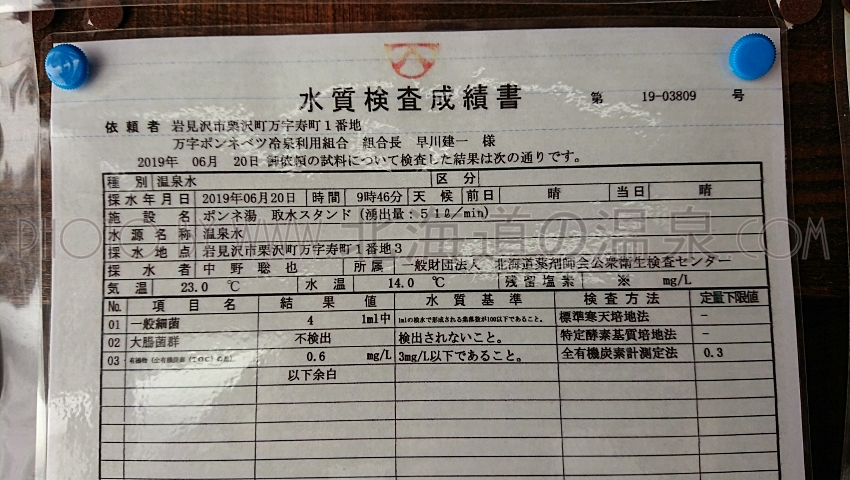 水質検査成績書
第 19-03809 号
依頼者 岩見沢市栗沢町万字寿町1番地
万字ポンネベツ冷泉利用組合 組合長 早川建一 様
2019年 06月 20日 御依頼の試料について検査した結果は次の通りです。
種別 温泉水 区分
採水年月日 2019年06月20日 時間 9時46分 天候 前日 晴 当日 晴
施設名 ポンネ湯 取水スタンド(湧出量:51ℓ/min)
水源名称 温泉水
採水地点 岩見沢市栗沢町万字寿町1番地3
採水者 中野聡也 所属 一般財団法人 北海道薬剤師会公衆衛生検査センター
気温 23.0 ℃ 水温 14.0 ℃ 残留塩素 ※ mg/L
No. 項目名 結果値 水質基準 検査方法 定量下限値
01 一般細菌 4 1ml中 1mlの検水で形成される集落数が100以下であること。 標準寒天培地法 -
02 大腸菌群 不検出 検出されないこと。 特定酵素基質培地法 -
03 有機物(全有機炭素(TOC)の量) 0.6 mg/L 3mg/L以下であること。 全有機炭素計測定法 0.3
以下余白
北海道の温泉.COM